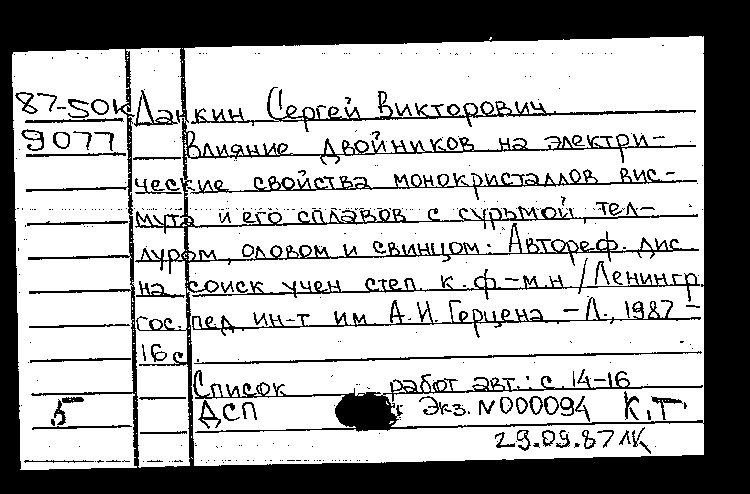 87-50к Ланкин, Сергей Викторович.
9077 Влияние двойников на электри-
ческие свойства монокристаллов вис-
мута и его сплавов с сурьмой, тел-
луром, оловом и свинцом: Автореф. дис
на соиск учен степ. к.ф-м.н /Ленингр
гос. пед. ин-т им. А.И. Герцена. -Л., 1987 -
16 с.
Список работ авт.: с. 14-16
5 ДСП Экз. N000094 К.Т
29.09.87 ЛК